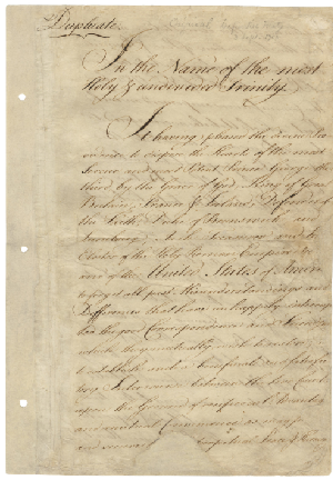 Duplicate.
In the Name of the most
Holy & undivided Trinity.
It having pleased the divine Pro
vidence to dispose the Hearts of the most
Serene and most Potent Prince George the
third, by the Grace of God, King of Great
Britain, France & Ireland, Defender of
the Faith, Duke of Brunswick and
Lunebourg, Arch Treasurer and
Elector of the Holy Roman Empire &c
and of the United States of America
to forget all past Misunderstandings and
Differences that have unhappily interrup
ted the good Correspondence and Friendship
which they mutually wish to restore
to establish such a beneficial and satisfac
tory Intercourse between the two
upon the Ground of reciprocal Advantages
and mutual Convenience as may
and secure perpetual Peace &